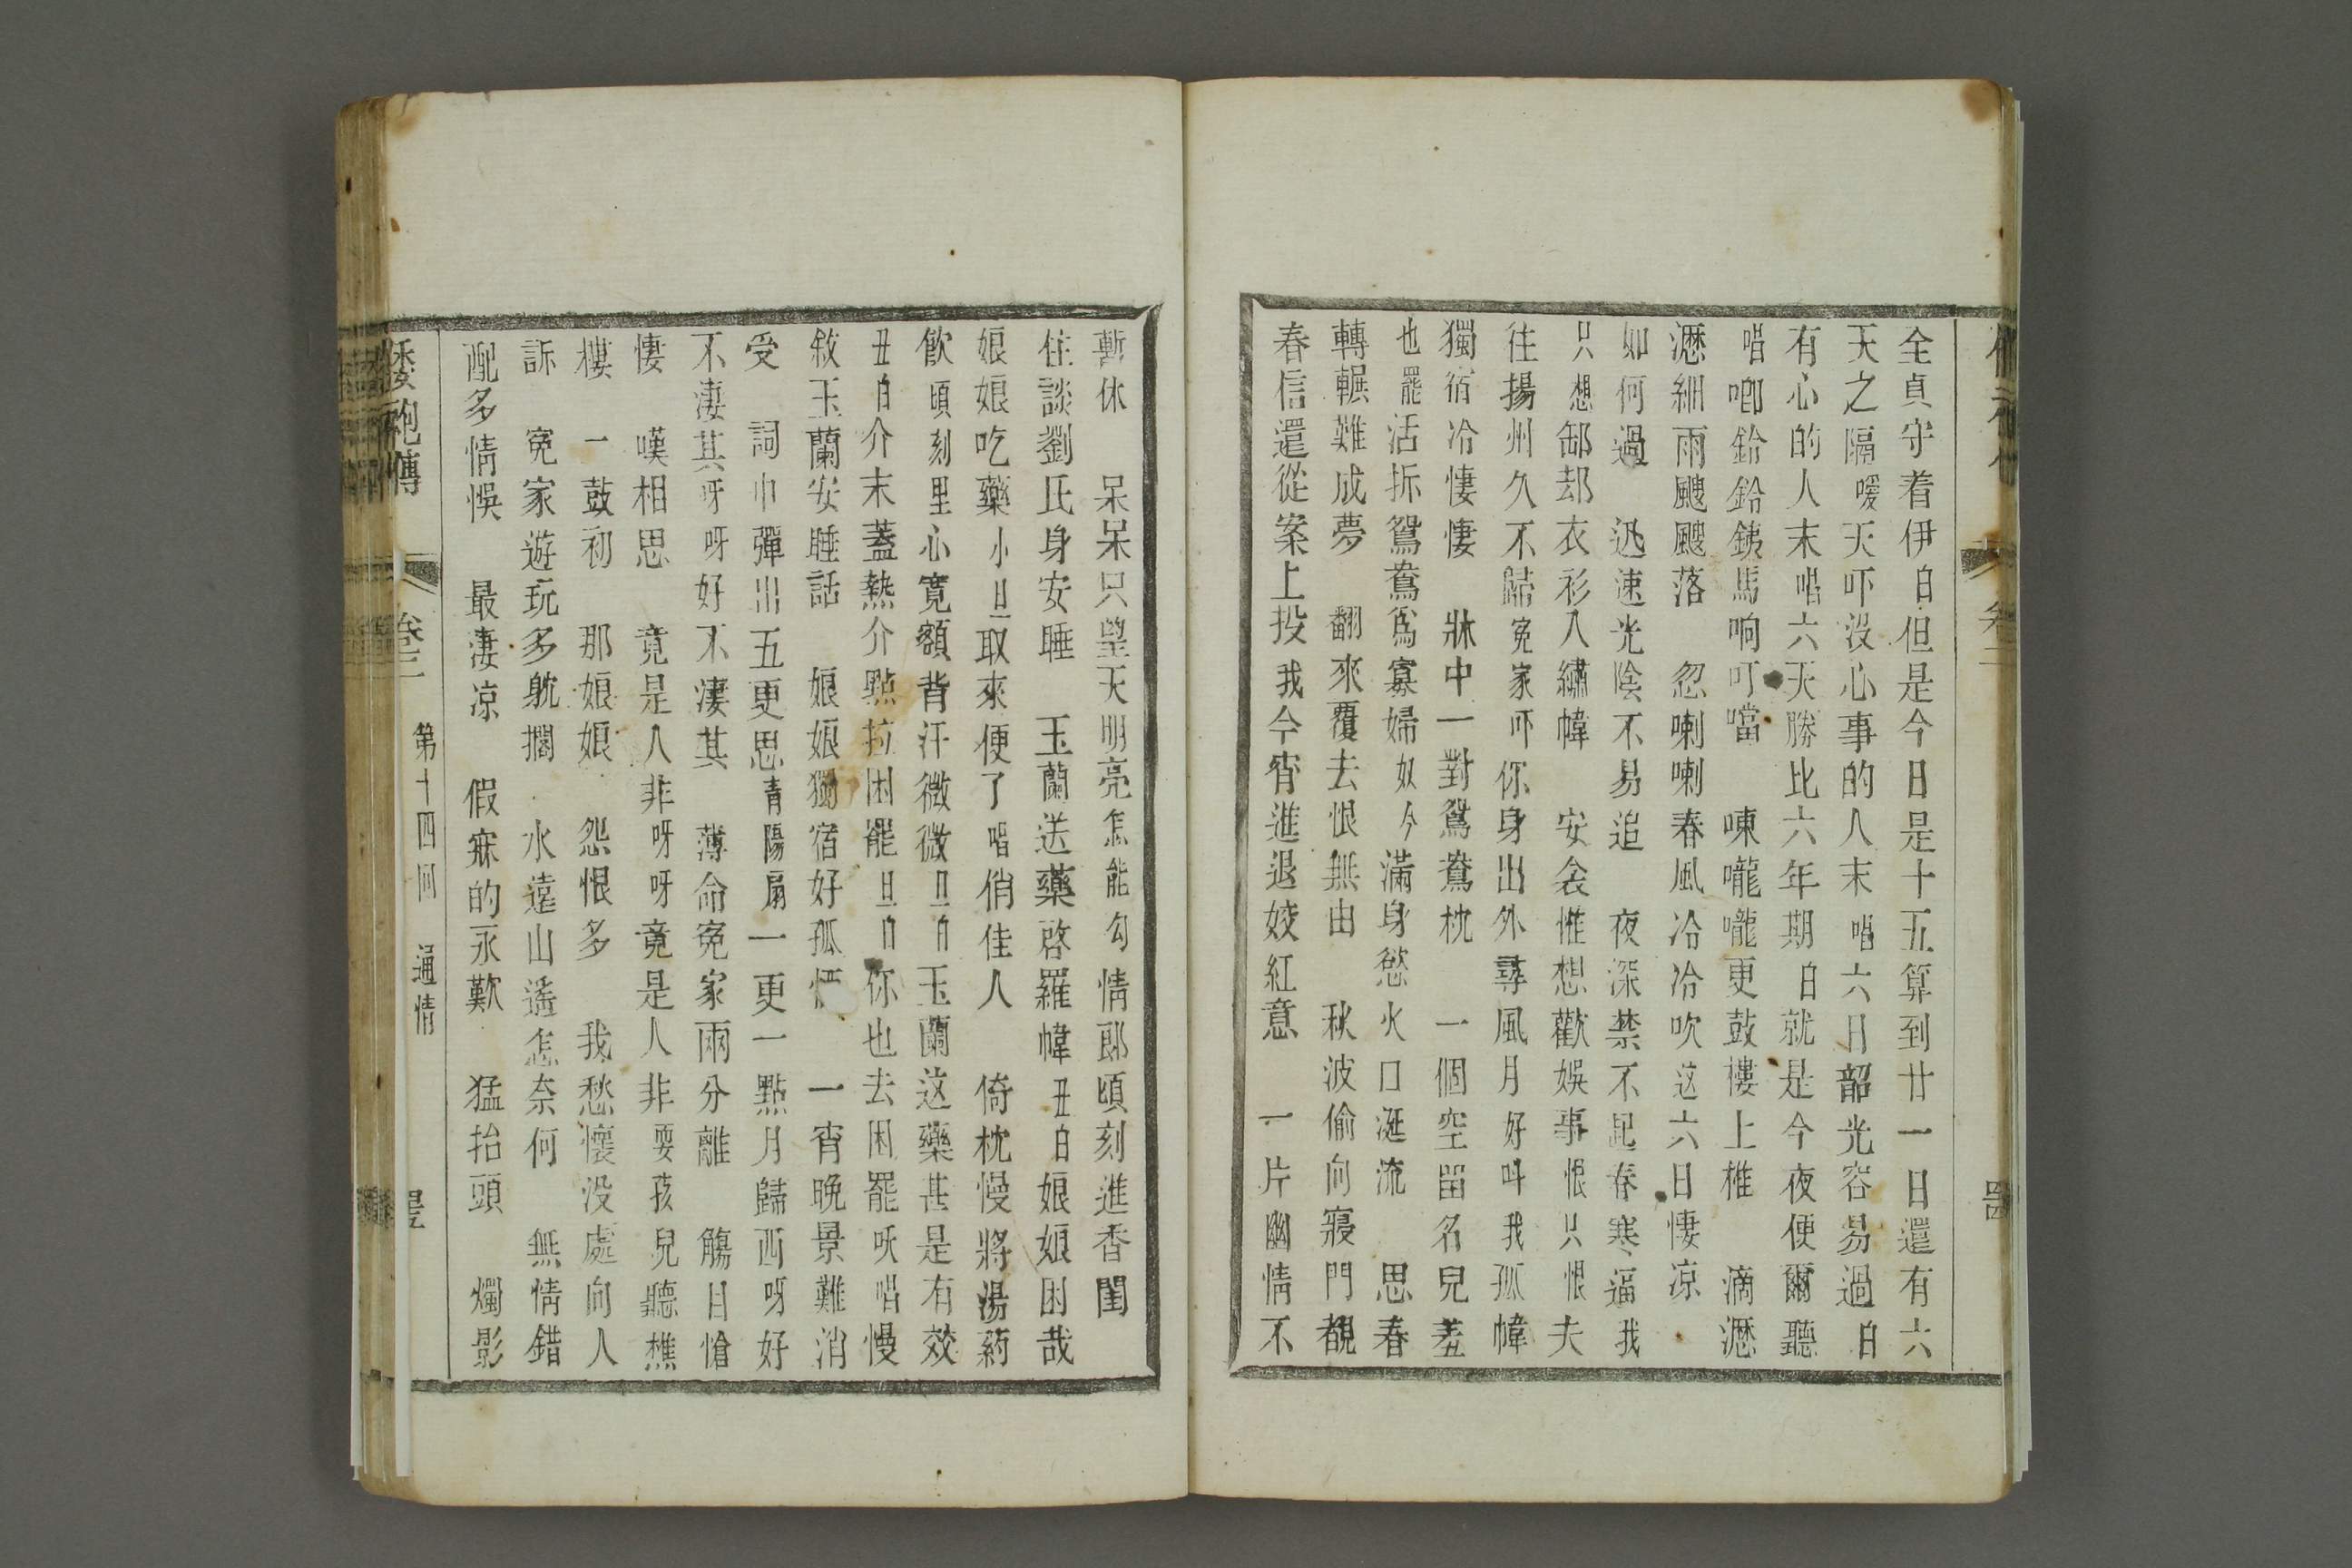 卷二
全貞守着伊白但是今日是十五算到廿一日還有六
天之隔噯天吓没心事的人末唱六日韶光容易過白
有心的人末唱六天勝比六年期白就是今夜便爾聽
唱啷鈴鈴鉄馬响叮噹 㖦嚨嚨更鼓樓上椎 滴瀝
瀝細雨颼颼落 忽喇喇春風冷冷吹这六日悽凉
如何過 迅速光陰不易追 夜深禁不起春寒逼我
只想卸却衣衫入繡幃 安衾惟想歡娛事恨只恨夫
往揚州久不歸寃家吓你身出外尋風月好叫我孤幃
獨宿冷悽悽 牀中一對鴛鴦枕 一個空留名兒羞
也罷活拆鴛鴦爲寡婦奴今滿身慾火口涎流 思春
轉輾難成夢 翻來覆去恨無由 秋波偷向寢門覩
春信還從案上投我今宵進退姣紅意 一片幽情不
暫休 呆呆只望天明亮怎能勾情郎頃刻進香閨
住談劉氏身安睡 玉蘭送藥啓羅幃丑白娘娘困哉
娘娘吃藥小旦取來便了唱俏佳人 倚枕慢將湯葯
飲頃刻里心寛額背汗微微旦白玉蘭这藥甚是有效
丑白介末蓋熱介點拉困罷旦白你也去困罷吙唱慢
敘玉蘭安睡話 娘娘獨宿好孤恓 一宵晚景難消
受 詞中彈出五更思青陽扇一更一點月歸西呀好
不淒其呀呀好不淒其 薄命寃家兩分離 觴目愴
悽 嘆相思 竟是人非呀呀竟是人非耍孩兒聽樵
樓 一鼓初 那娘娘 怨恨多 我愁懷没處向人
訴 寃家遊玩多躭擱 水遠山遙怎奈何 無情錯
配多情悞 最淒凉 假寐的永歎 猛抬頭 燭影
倭袍傳 卷二 第十四囘 通情